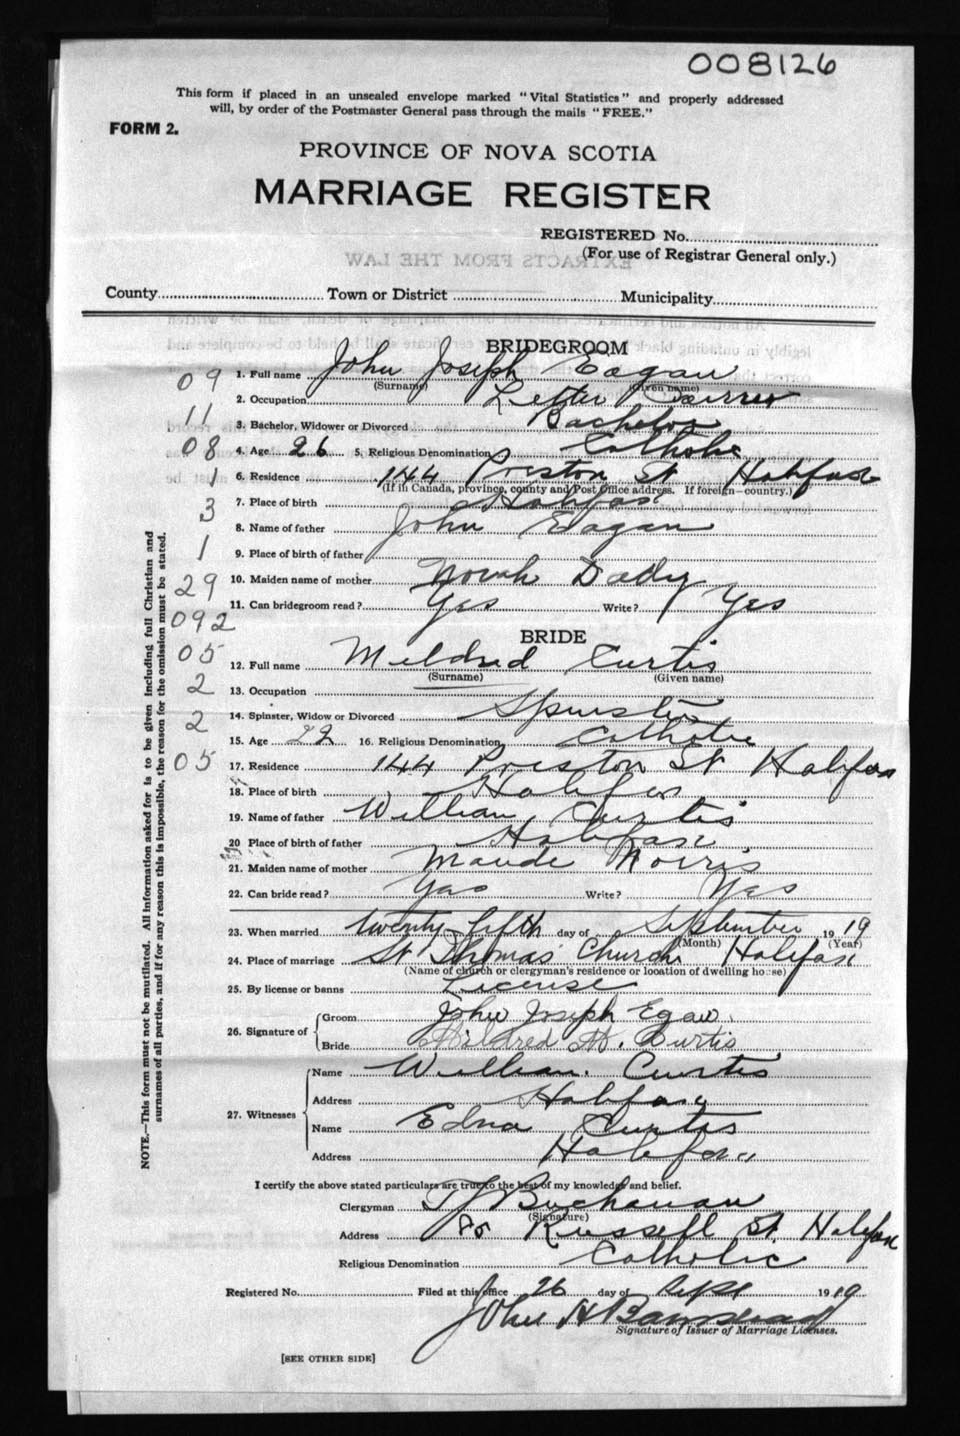 008126
This form if placed in an unsealed envelope marked "Vital Statistics" and properly addressed
will, by order of the Postmaster General pass through the mails "FREE."
FORM 2.
PROVINCE OF NOVA SCOTIA
MARRIAGE REGISTER
REGISTERED No.
(For use of Registrar General only.)
EXTRACTS FROM THE LAW
County Town or District Municipality
BRIDEGROOM
09 1. Full name John Joseph Eagan
(Surname) (Given name)
2. Occupation Letter Carrier
11 3. Bachelor, Widower or Divorced Bachelor
08 4. Age 26 5. Religious Denomination Catholic
1 6. Residence 144 Preston St Halifax
(If in Canada, province, county and Post Office address. If foreign—country.)
3 7. Place of birth Halifax
8. Name of father John Eagan
1 9. Place of birth of father
29 10. Maiden name of mother Norah Dady
11. Can bridegroom read? Yes Write? Yes
092
BRIDE
05 12. Full name Mildred Curtis
(Surname) (Given name)
2 13. Occupation
2 14. Spinster, Widow or Divorced Spinster
15. Age 22 16. Religious Denomination Catholic
05 17. Residence 144 Preston St Halifax
18. Place of birth Halifax
19. Name of father William Curtis
20 Place of birth of father Halifax
21. Maiden name of mother Maude Norris
22. Can bride read? Yes Write? Yes
23. When married twenty fifth day of September 19 19
(Month) (Year)
24. Place of marriage St Thomas Church Halifax
(Name of church or clergyman's residence or location of dwelling house)
25. By license or banns License
26. Signature of Groom John Joseph Egan
Bride Mildred M. Curtis
27. Witnesses Name William Curtis
Address Halifax
Name Edna Curtis
Address Halifax
I certify the above stated particulars are true to the best of my knowledge and belief.
Clergyman TJ Buchanan
(Signature)
Address 80 Russell St. Halifax
Religious Denomination Catholic
Registered No. Filed at this office 26 day of Sept 1919
John H
Signature of Issuer of Marriage Licenses.
[SEE OTHER SIDE]
NOTE.—This form must not be mutilated. All information asked for is to be given including full Christian and
surnames of all parties, and if for any reason this is impossible, the reason for the omission must be stated.